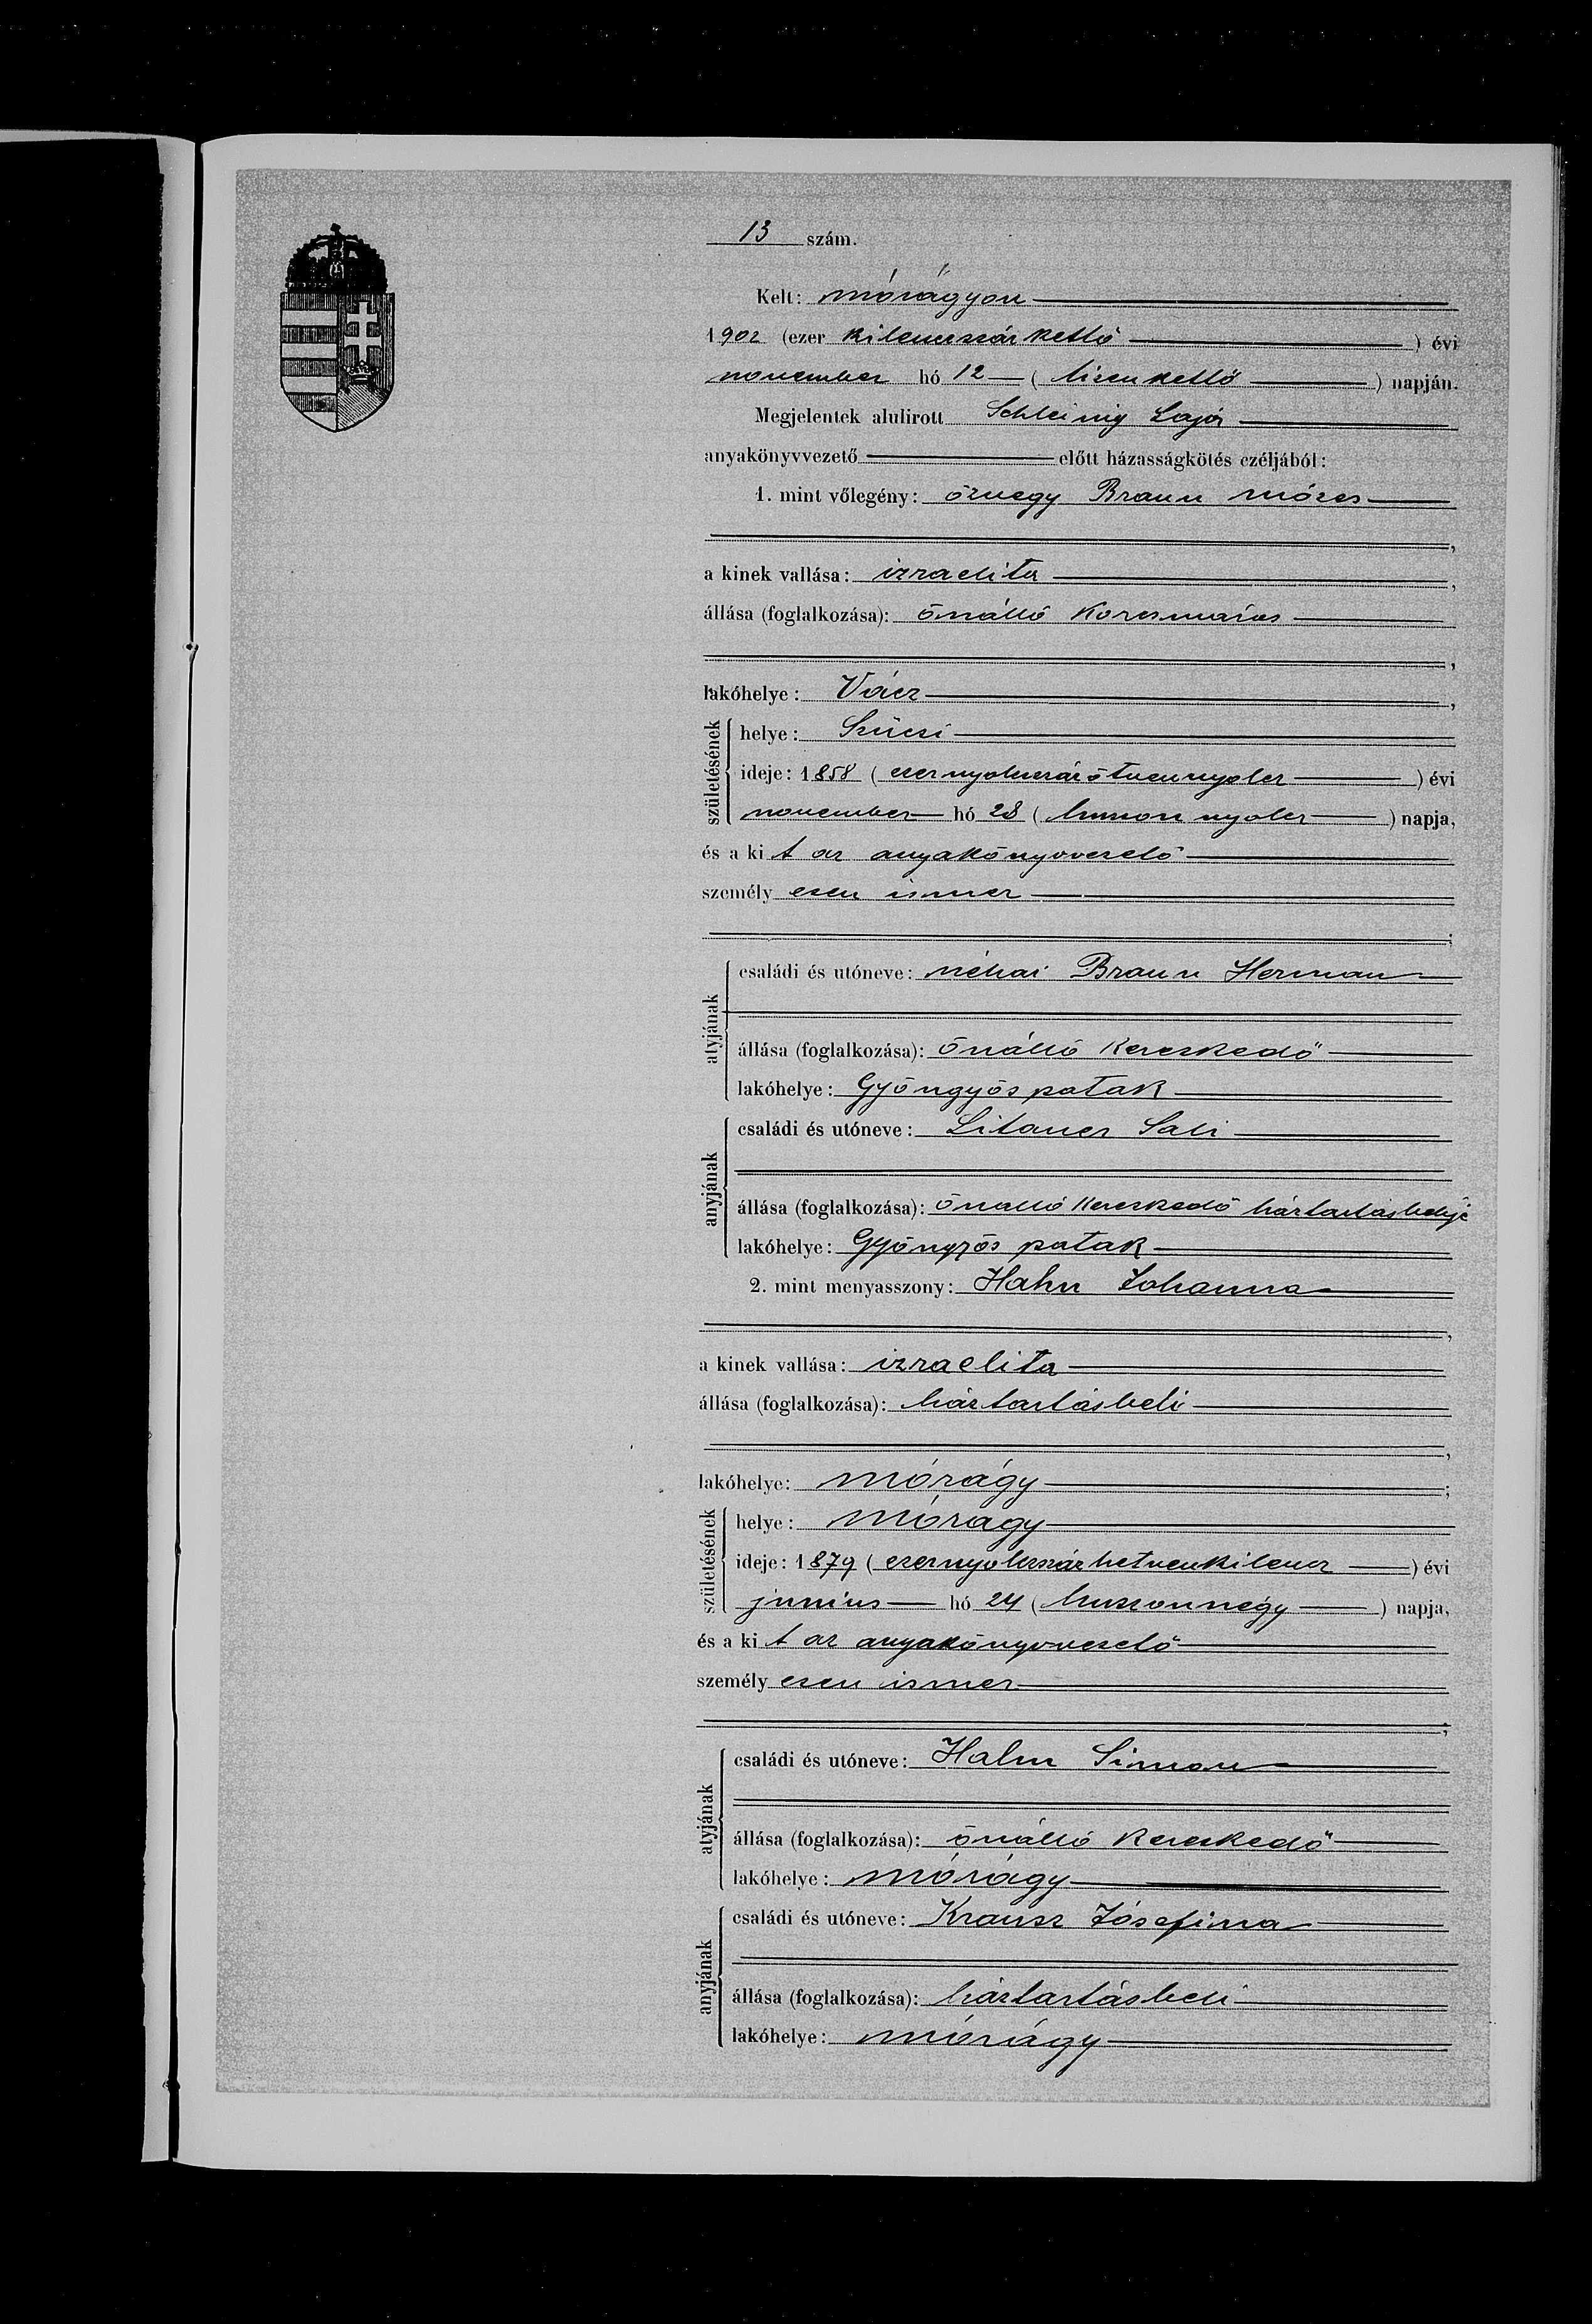 13 szám.
Kelt: Mórágyon
1902 (ezer kilenczszáz kettő) évi
november hó 12 (tizenkettő) napján.
Megjelentek alulirott Schleinig Lajos
anyakönyvvezető előtt házasságkötés czéljából:
1. mint vőlegény: özvegy Braun Mózes
,
a kinek vallása: izraelita,
állása (foglalkozása): önálló korcsmáros
,
lakóhelye: Vácz,
születésének
helye: Szücsi
ideje: 1858 (ezernyolczszázötvennyolcz) évi
november hó 28 (huszon nyolcz) napja,
és a kit az anyakönyvvezető
személyesen ismer
;
atyjának
családi és utóneve: néhai Braun Herman
állása (foglalkozása): önálló kereskedő
lakóhelye: Gyöngyöspatak
anyjának
családi és utóneve: Litauer Sali
állása (foglalkozása): önálló kereskedő háztartásbelije
lakóhelye: Gyöngyös patak
2. mint menyasszony: Hahn Johanna
,
a kinek vallása: izraelita
állása (foglalkozása): háztartásbeli
,
lakóhelye: Mórágy;
születésének
helye: Mórágy
ideje: 1879 (ezernyolczszázhetvenkilencz) évi
junius hó 24 (huszonnégy) napja,
és a kit az anyakönyvvezető
személyesen ismer
;
atyjának
családi és utóneve: Hahn Simon
állása (foglalkozása): önálló kereskedő
lakóhelye: Mórágy
anyjának
családi és utóneve: Krausz Jósefina
állása (foglalkozása): háztartásbeli
lakóhelye: Mórágy